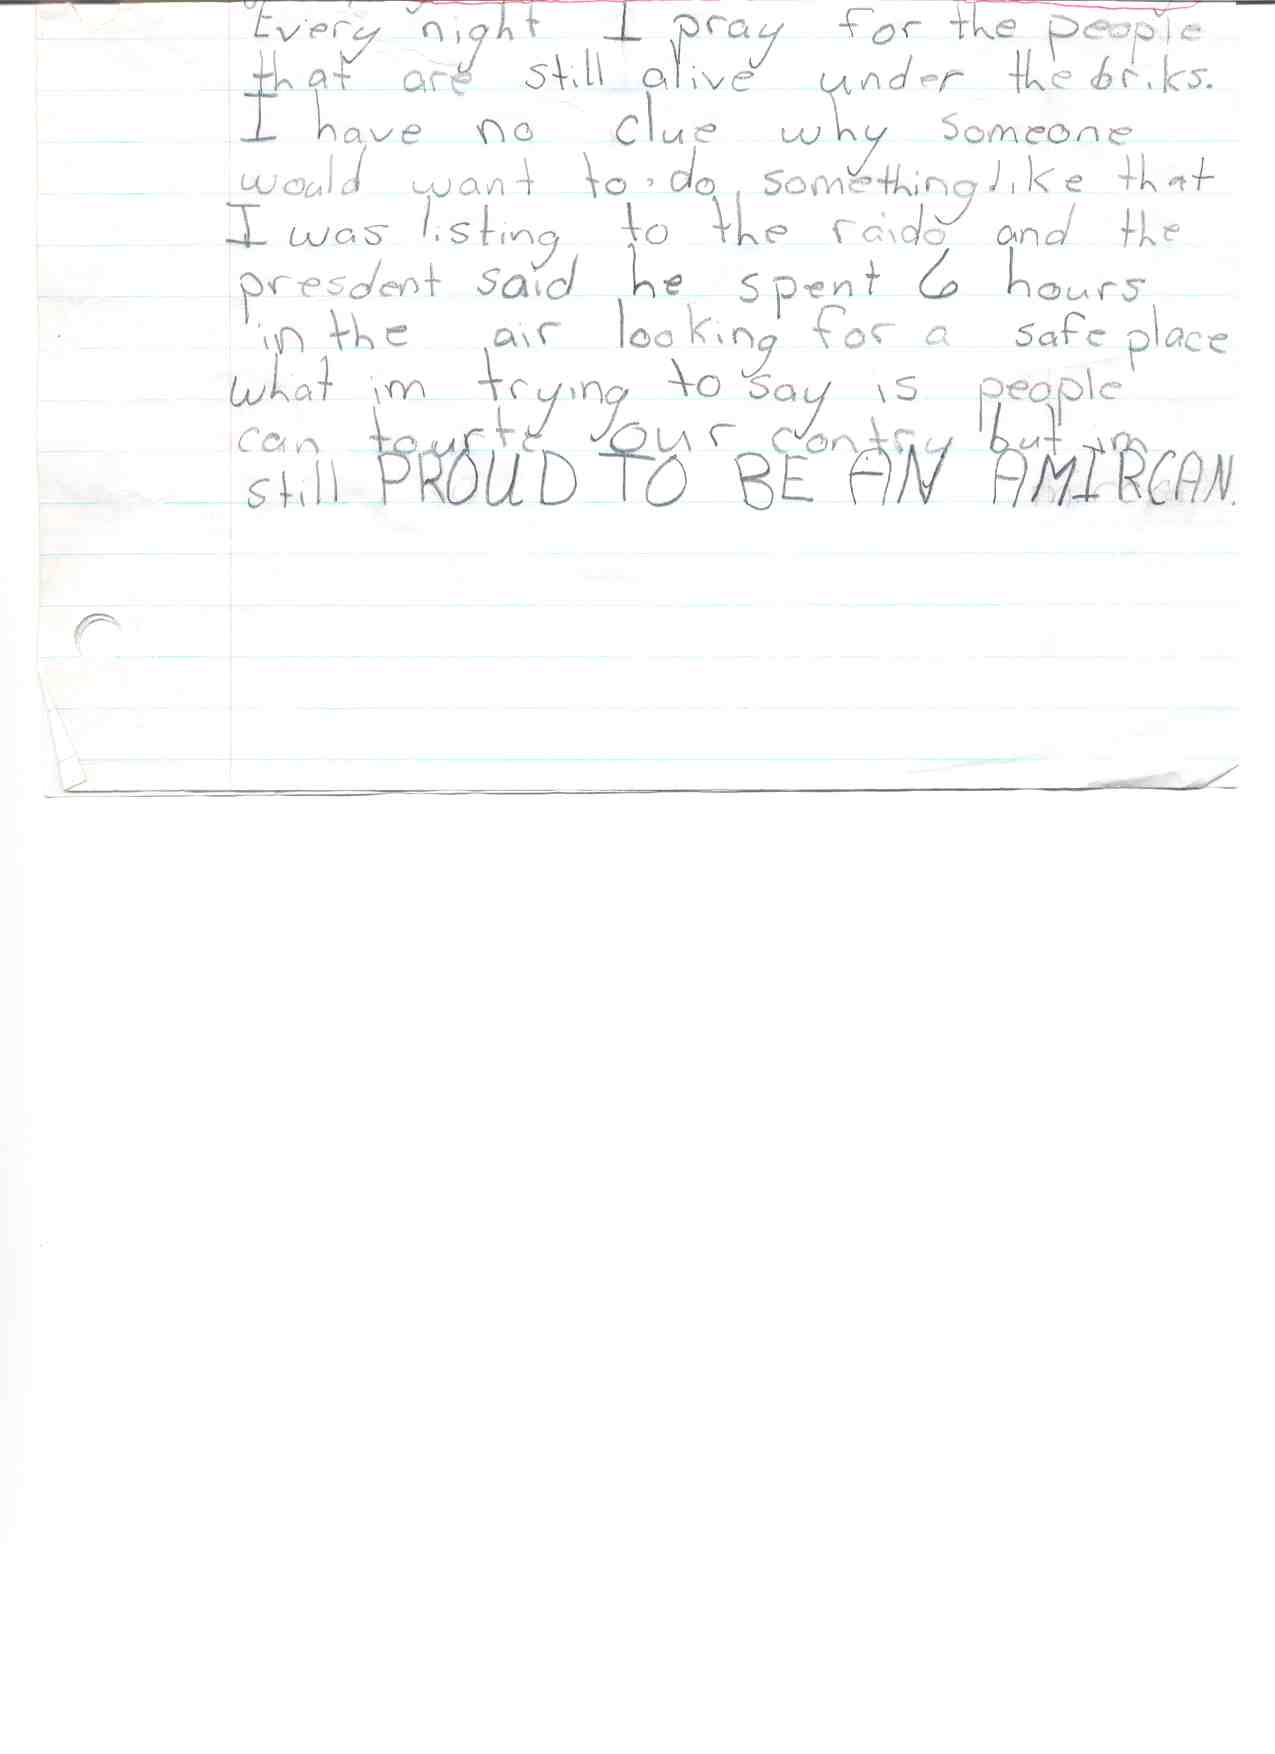 Every night I pray for the people
that are still alive under the briks.
I have no clue why someone
would want to do something like that
I was listing to the raido and the
presdent said he spent 6 hours
in the air looking for a safe place
what im trying to say is people
can tourte our contry but im
still PROUD TO BE AN AMIRCAN.